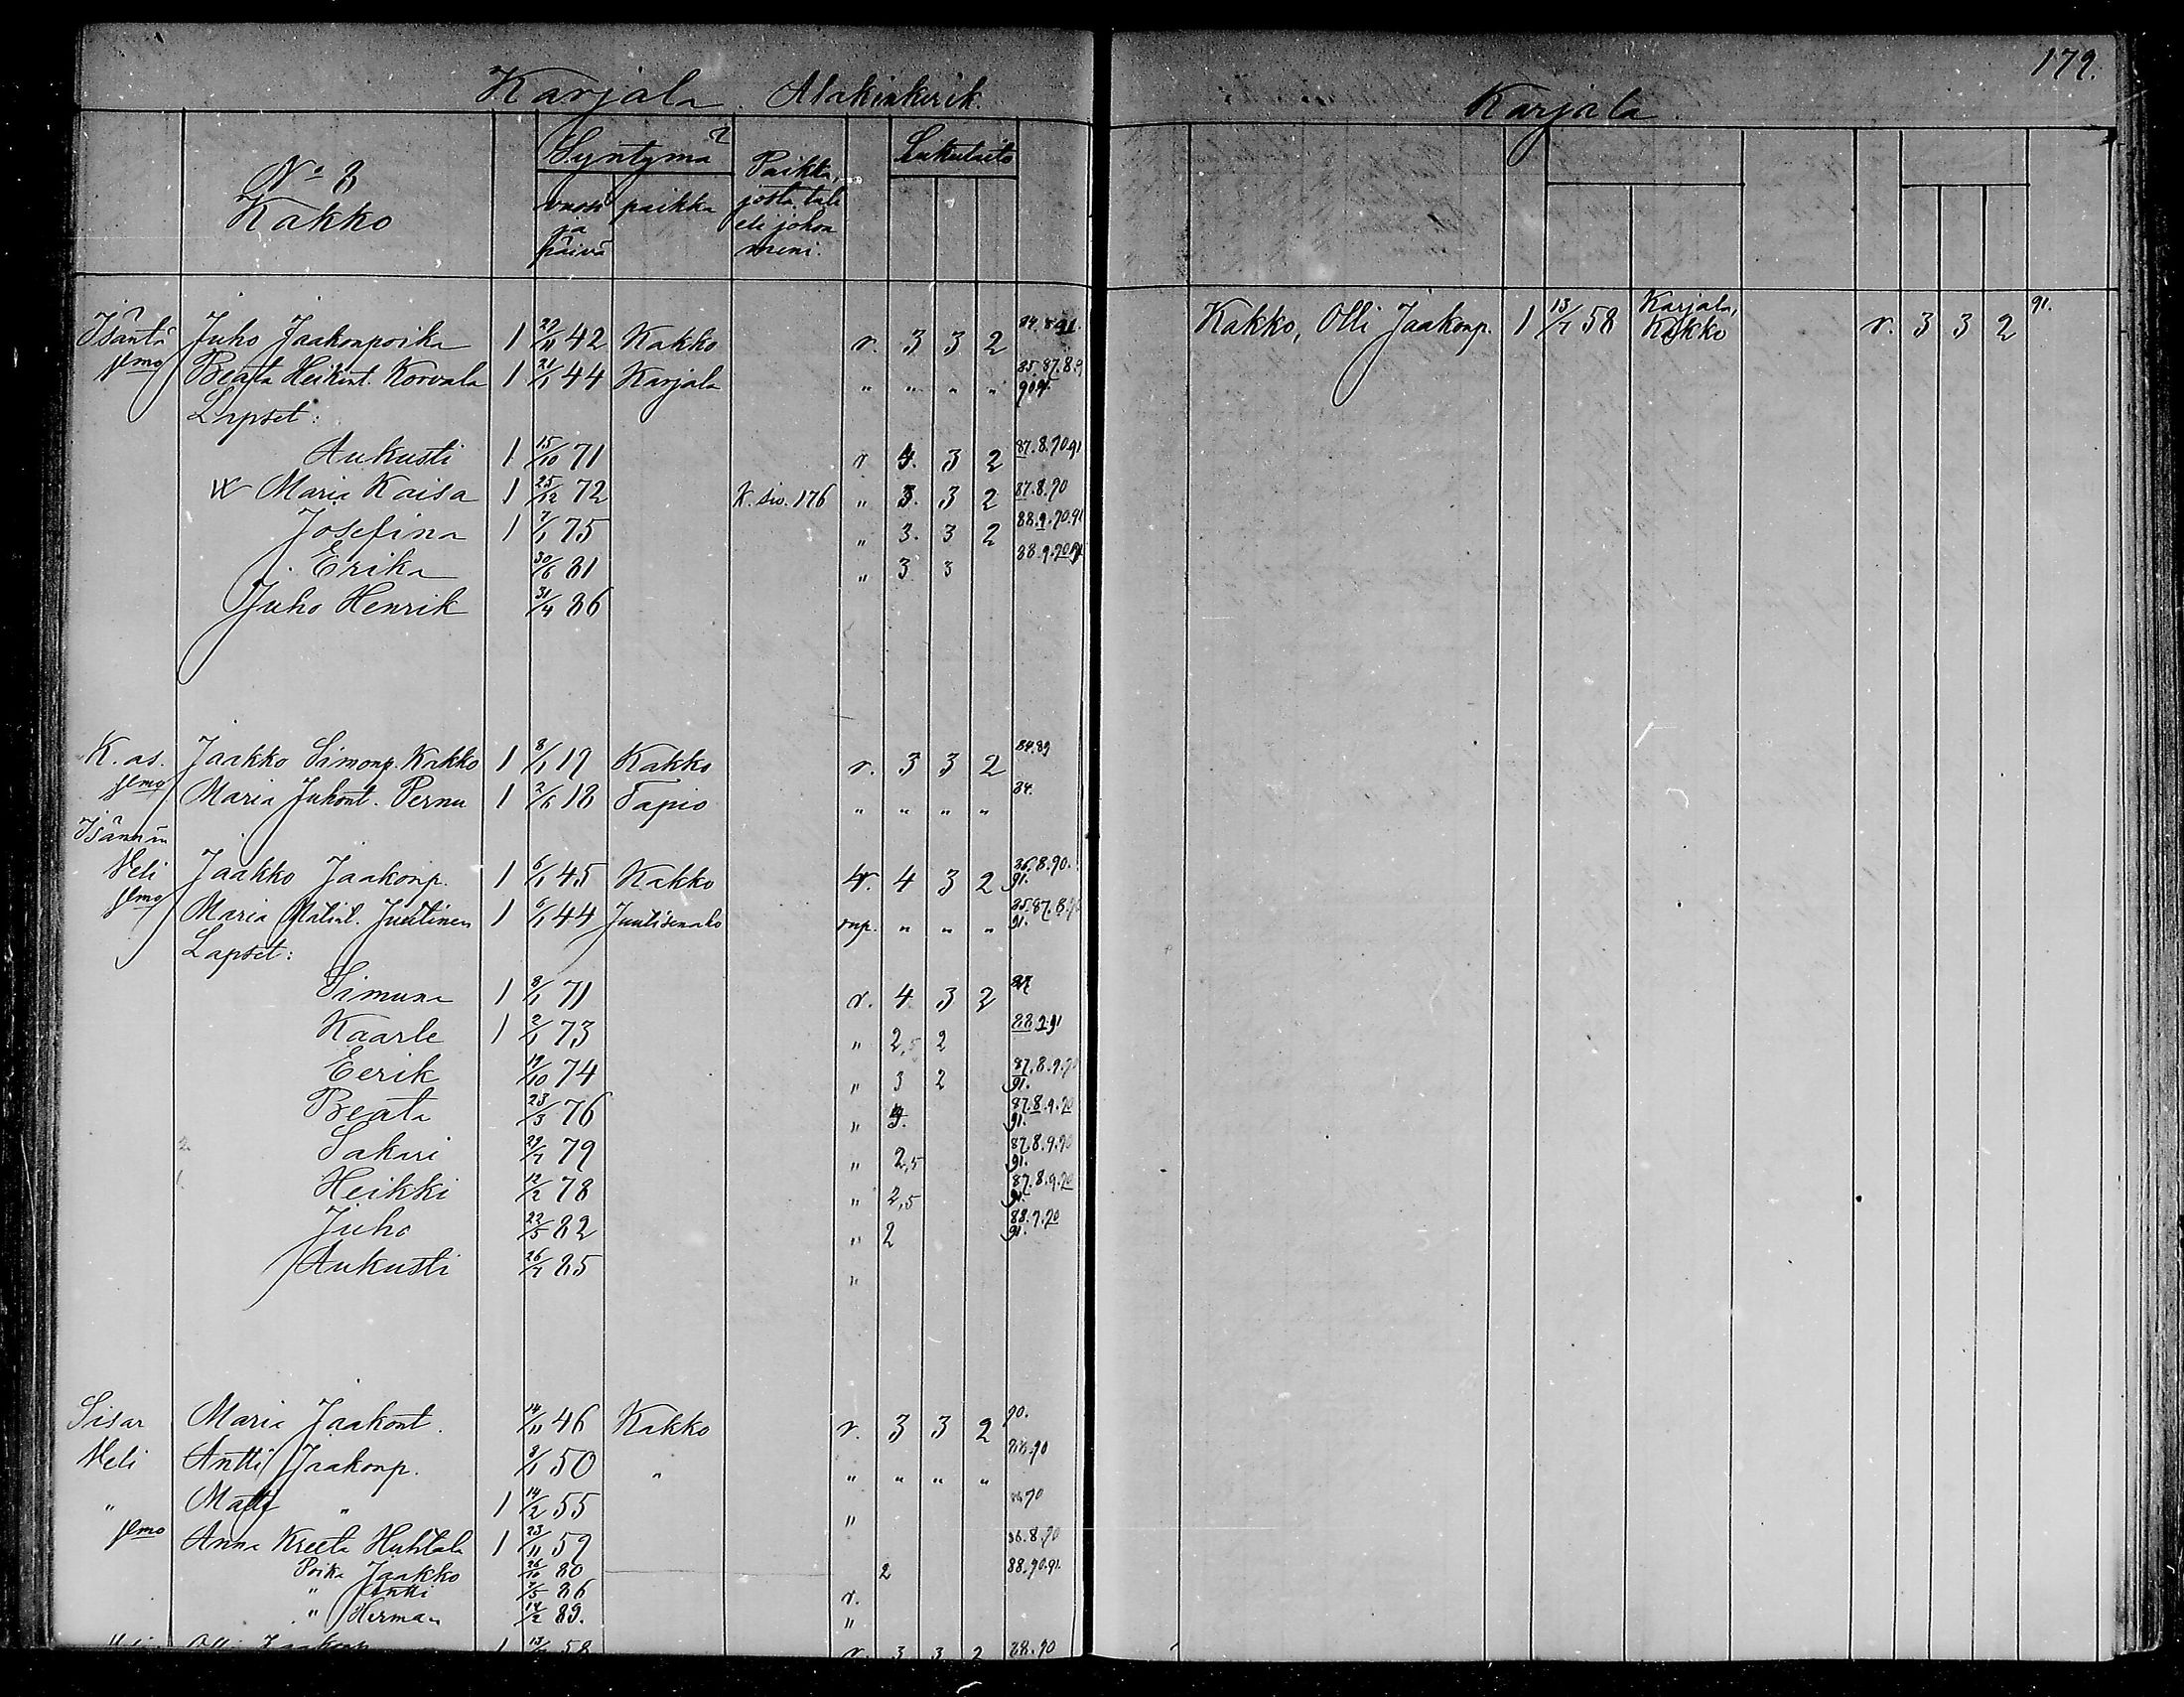 Karjala. Alakinkerik.
Syntymä Lukutaito
No 3 Kakko vuosi ja päivä paikka Paikka, josta tuli eli johon meni.
Isäntä Juho Jaakonpoika 1 22/11 42 Kakko r. 3 3 2
Vmo Beata Heikint. Korvala 1 21/1 44 Karjala " " " "
Lapset:
Aukusti 1 15/10 71 r 4. 3 2 87.8.90.91
Maria Kaisa 1 25/12 72 K. siv. 176 " 3. 3 2 87.8.90
Josefina 1 7/1 75 " 3. 3 2 88.9.90.91
Erika 30/6 81 " 3 3 88.9.90.91
Juho Henrik 31/4 86
K. as. Jaakko Simonp. Kakko 1 8/1 19 Kakko r. 3 3 2 84.89
Vmo Maria Juhont. Pernu 1 2/6 18 Tapio " " " " 84.
Isännän
Veli Jaakko Jaakonp. 1 6/1 45 Kakko r. 4 3 2 36.8.90. 91.
Vmo Maria Matint. Juutinen 1 6/1 44 Juutisenaho rnp. " " " 91.
Lapset:
Simuna 1 8/1 71 r. 4 3 2
Kaarle 1 2/1 73 " 2,5 2 88.9.91
Eerik 19/10 74 " 3 2 87.8.9.90 91.
Beata 23/3 76 " 87.8.9.90 91.
2 Sakari 29/7 79 " 2,5 87.8.9.90 91.
1 Heikki 12/2 78 " 2,5 87.8.9.90 91.
Juho 22/5 82 " 2 88.9.90 91.
Aukusti 26/7 85 "
Sisar Maria Jaakont. 14/11 46 Kakko r. 3 3 2 90.
Veli Antti Jaakonp. 8/1 50 " " " " "
" Matti " 1 14/2 55 "
Vmo Anna Kreeta Huhtala 1 23/11 59 36.8.90
Poika Jaakko 26/10 80 2 88.90.91.
" Antti 7/5 86 r.
" Herman 14/2 89. "
Veli Olli Jaakonp. 1 13/7 58 r. 3 3 2 88.90
179.
Karjala
Kakko, Olli Jaakonp. 1 13/7 58 Karjala, Kakko r. 3 3 2 91.